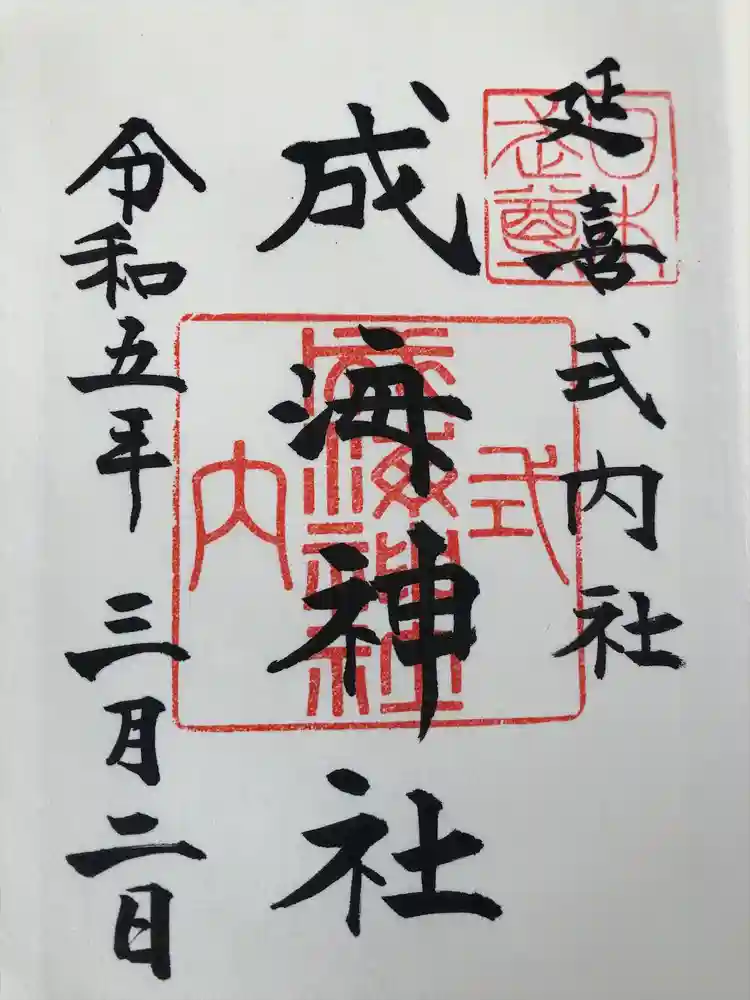 延喜式内社
日本武尊
成海神社
式
成海神社
内
令和五年 三月二日